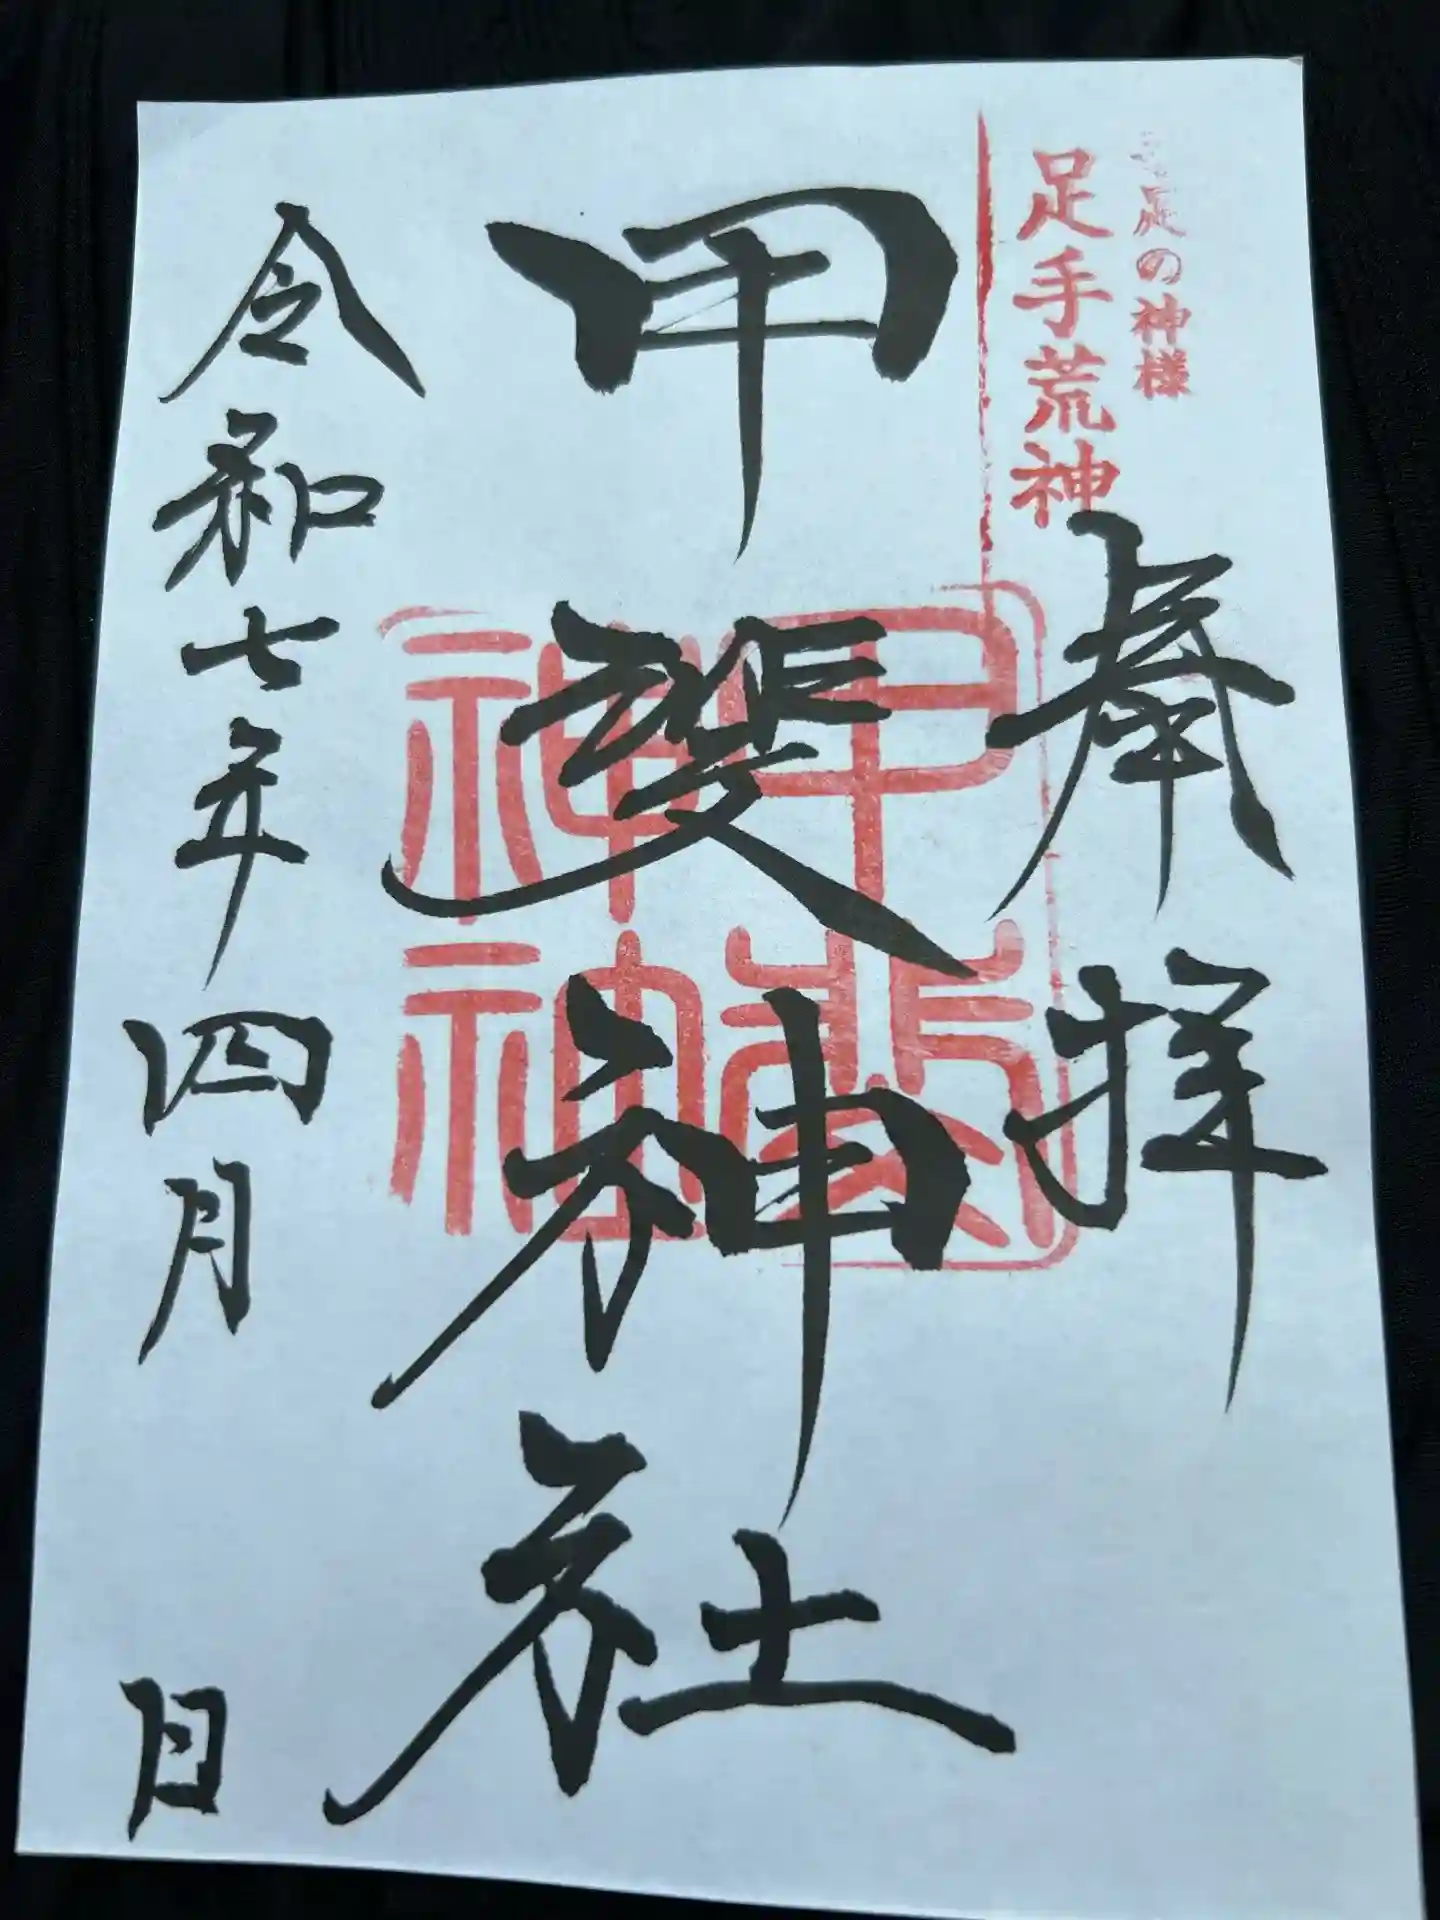 手足の神様
足手荒神
奉拝
甲斐神社
甲斐
令和七年四月 日